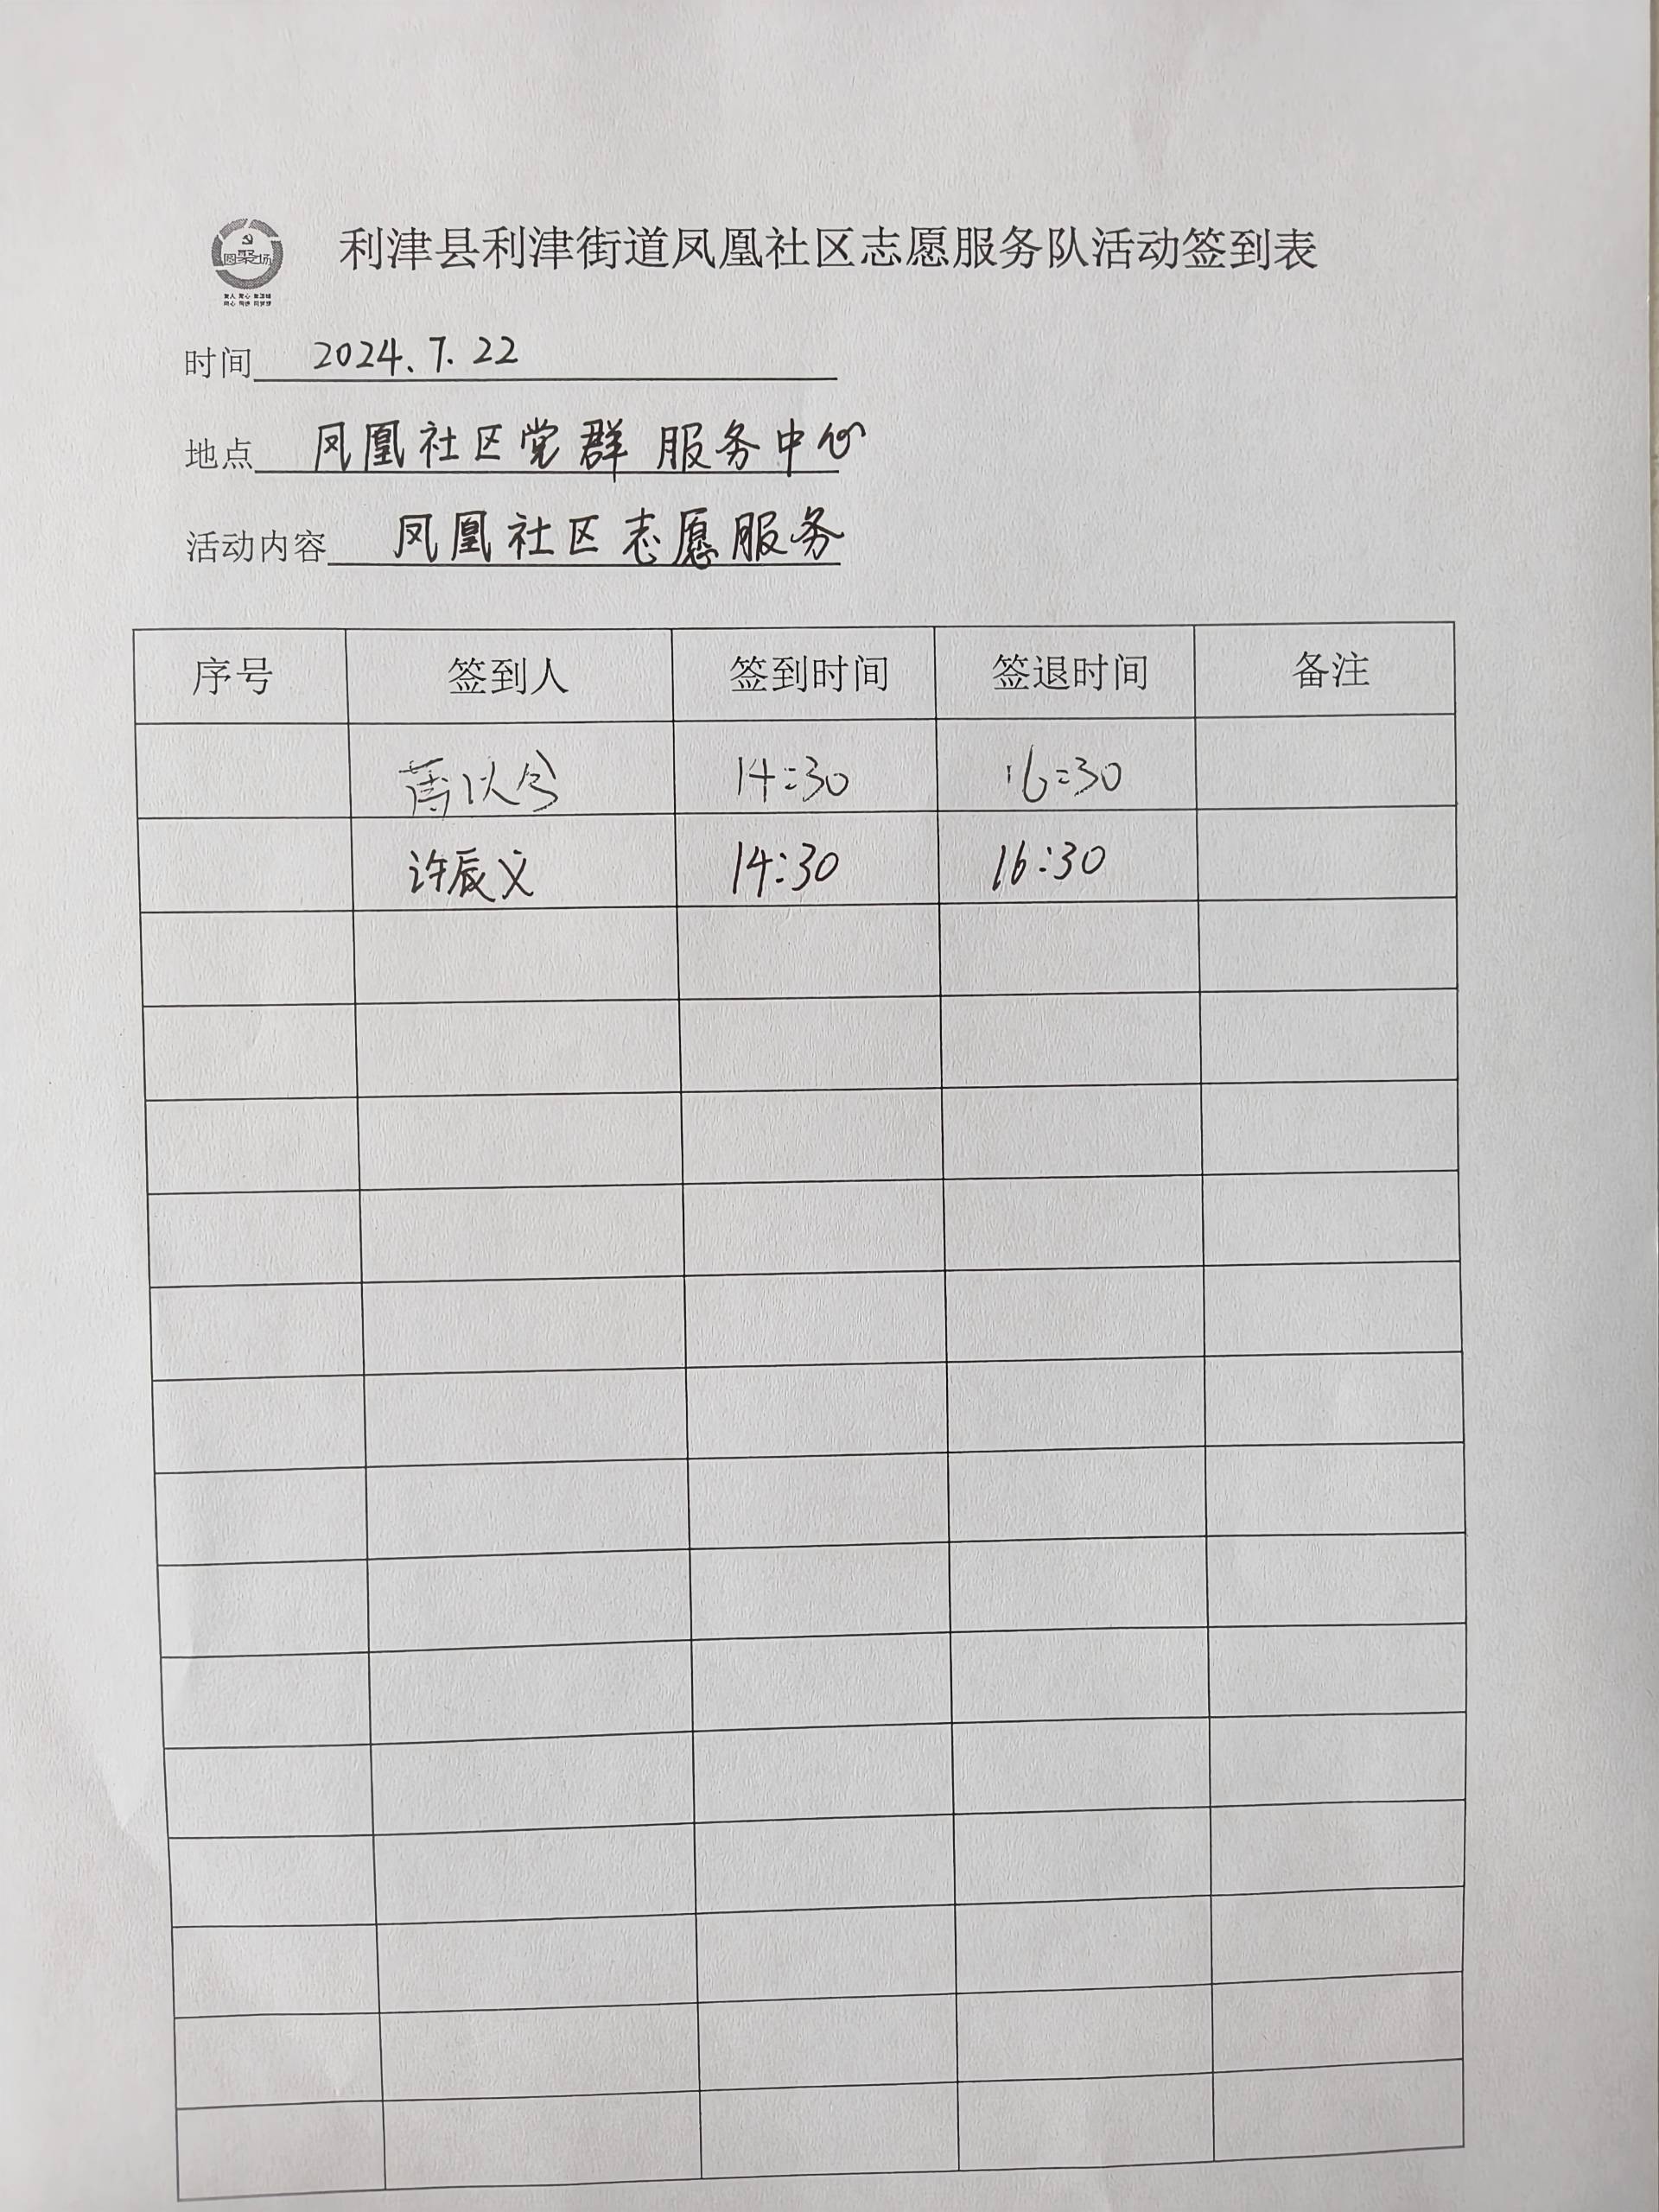 利津县利津街道凤凰社区志愿服务队活动签到表
时间 2024.7.22
地点 凤凰社区党群服务中心
活动内容 凤凰社区志愿服务
序号 签到人 签到时间 签退时间 备注
14:30 16:30
许辰义 14:30 16:30